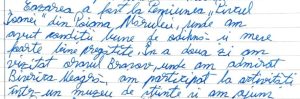 Cazarea a fost la Pensiunea "Cristal
Ioanei" din Poiana Mărului, unde am
avut condiții bune de odihnă și mese
foarte bine pregătite. În a doua zi am
vizitat orașul Brașov, unde am admirat
Biserica Neagră, am participat la activități
într-un muzeu de științe și am ajuns